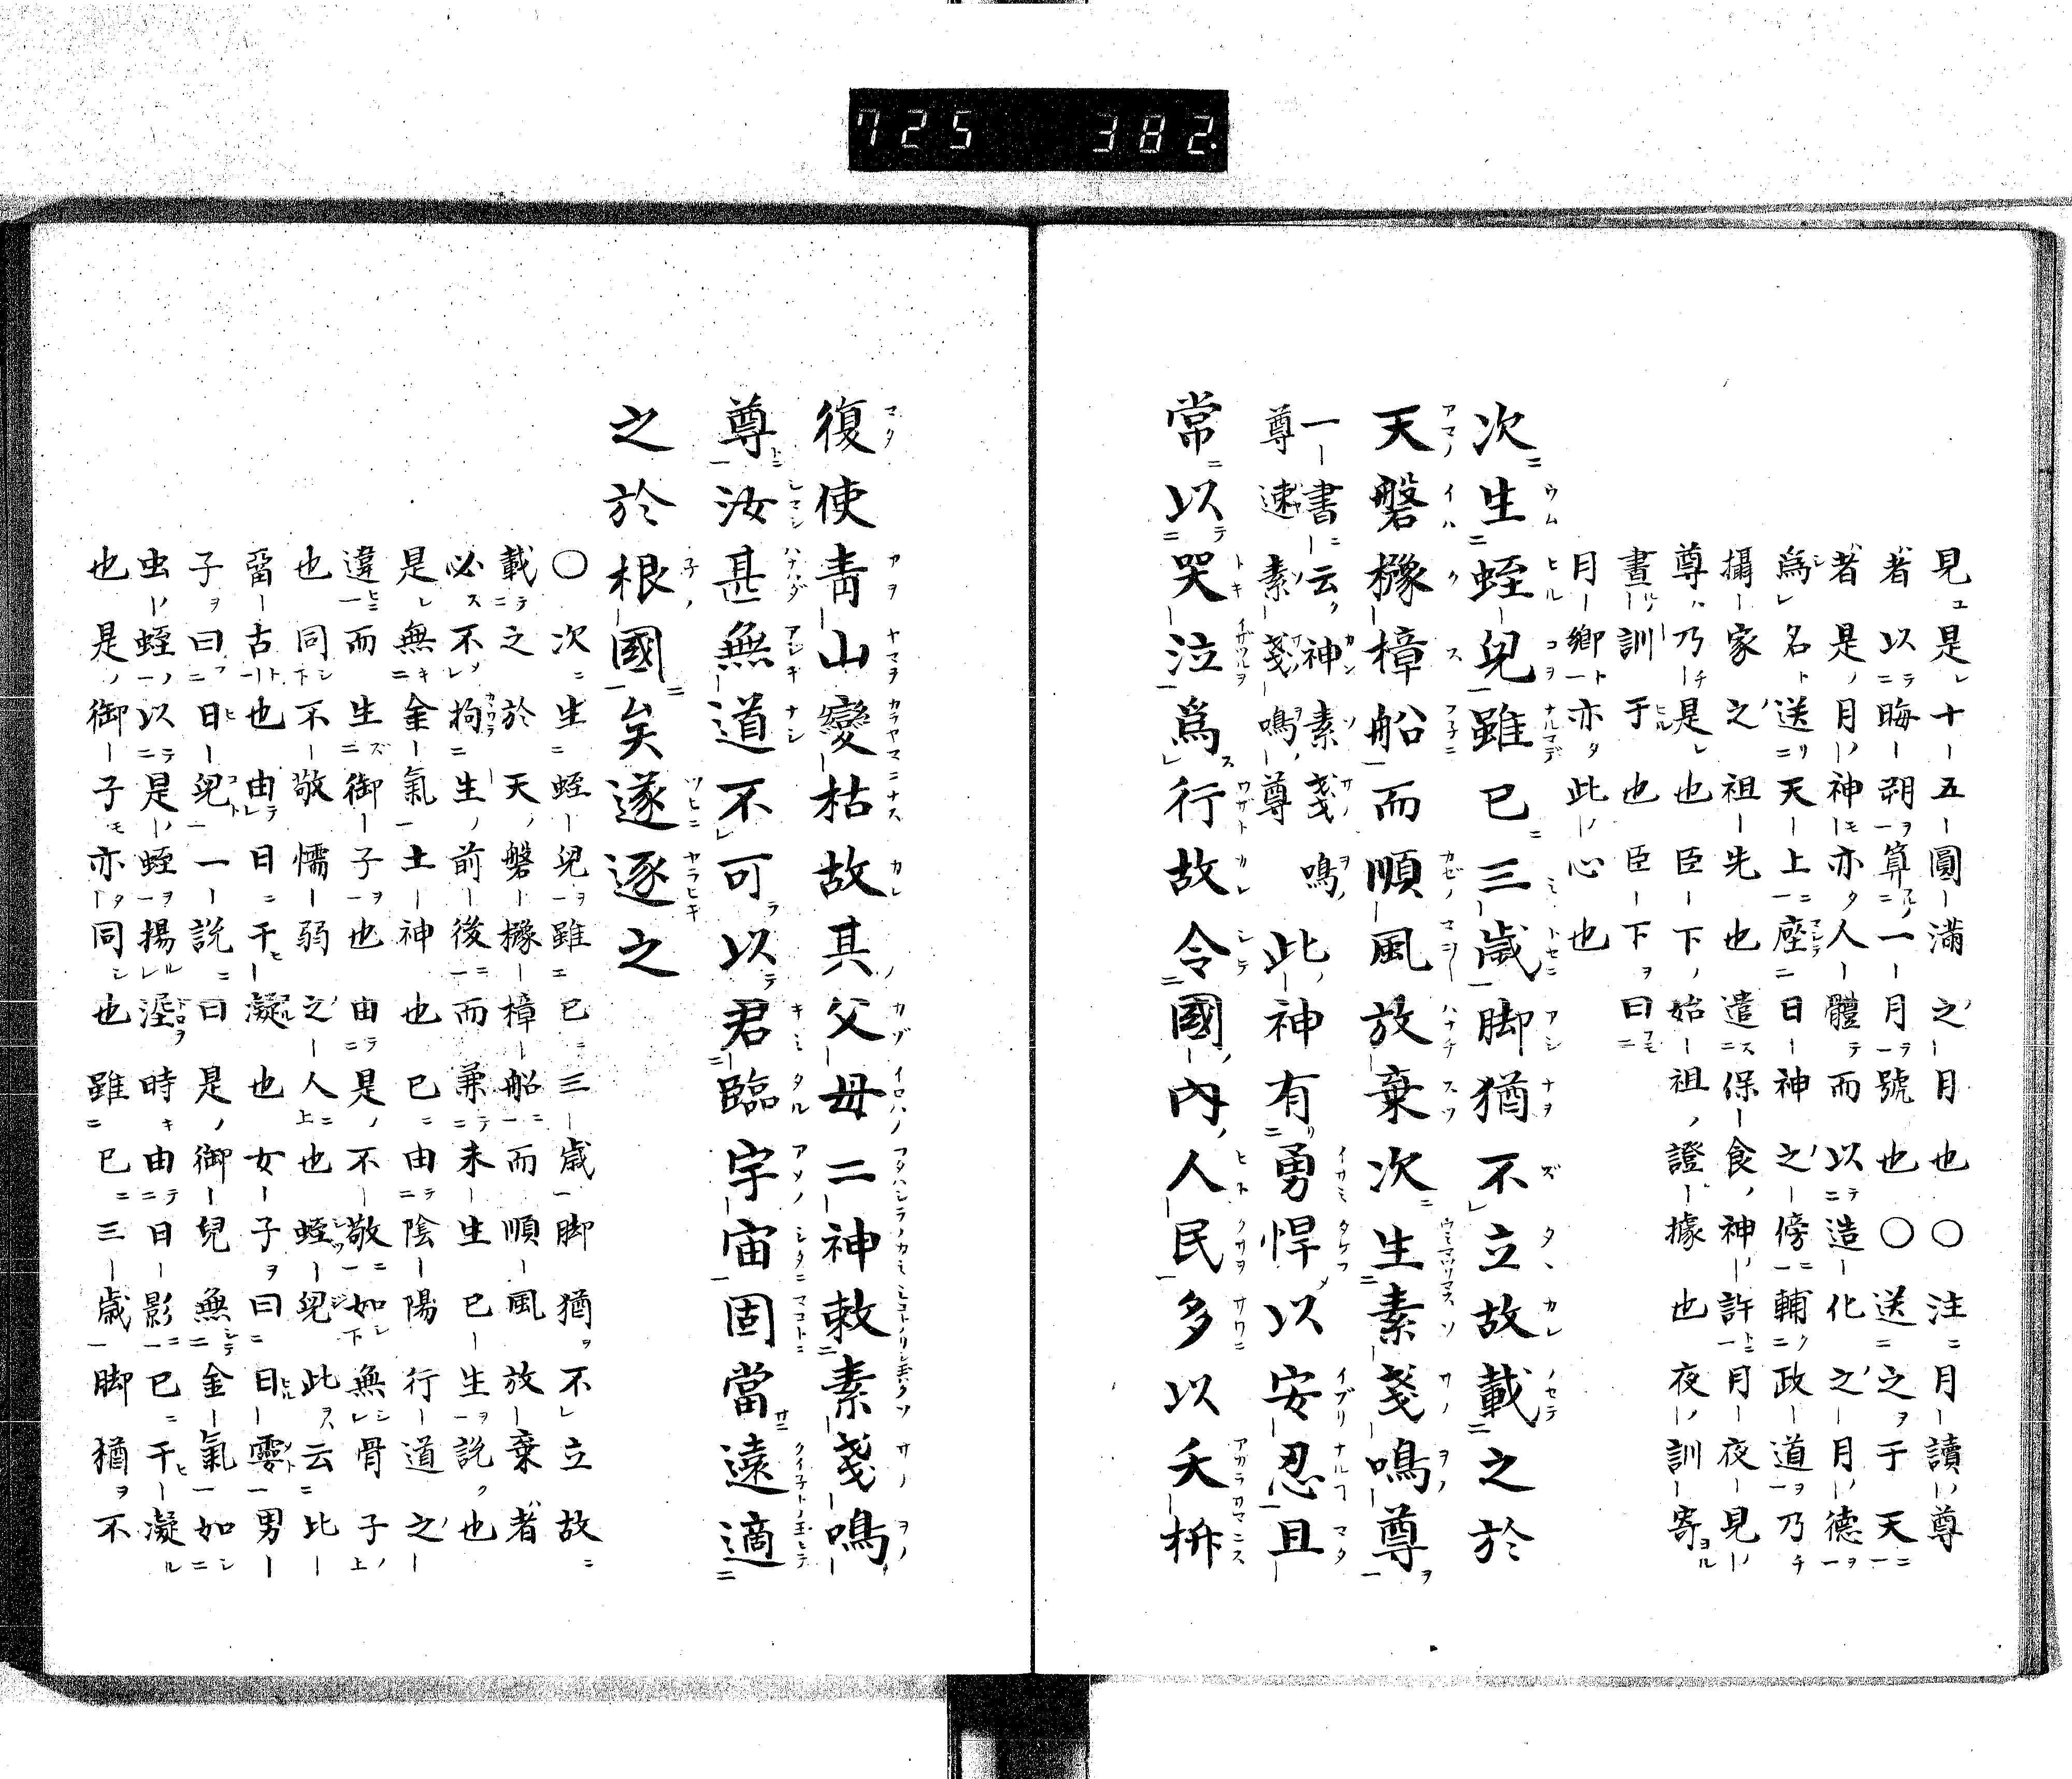 725 382.
見是十五圓滿之月也〇注月讀尊
者以晦朔算一月號也〇送之于天
者是月神亦人體而以造化之月德
爲名送天上座日神之傍輔政道乃
攝家之祖先也遣保食神許月夜見
尊乃是也臣下始祖證據也夜訓寄
晝訓于也臣下曰
月鄉亦此心也
次生蛭兒雖已三歲脚猶不立故載之於
天磐櫲樟船而順風放棄次生素戔鳴尊
一書云神素戔鳴
尊速素戔鳴尊
此神有勇悍以安忍且
常以哭泣爲行故令國內人民多以夭折
復使靑山變枯故其父母二神敕素戔鳴
尊汝甚無道不可以君臨宇宙固當遠適
之於根國矣遂逐之
〇次生蛭兒雖已三歲脚猶不立故
載之於天磐櫲樟船而順風放棄者
必不拘生前後而兼未生已生說也
是無金氣土神也已由陰陽行道之
違而生御子也由是不敬如無骨子
也同不敬懦弱之人也蛭兒此云比
畱古也由日干凝也女子曰日霎男
子曰日兒一說曰是御兒無金氣如
虫蛭以是蛭揚溼時由日影已干凝
也是御子亦同也雖已三歲脚猶不